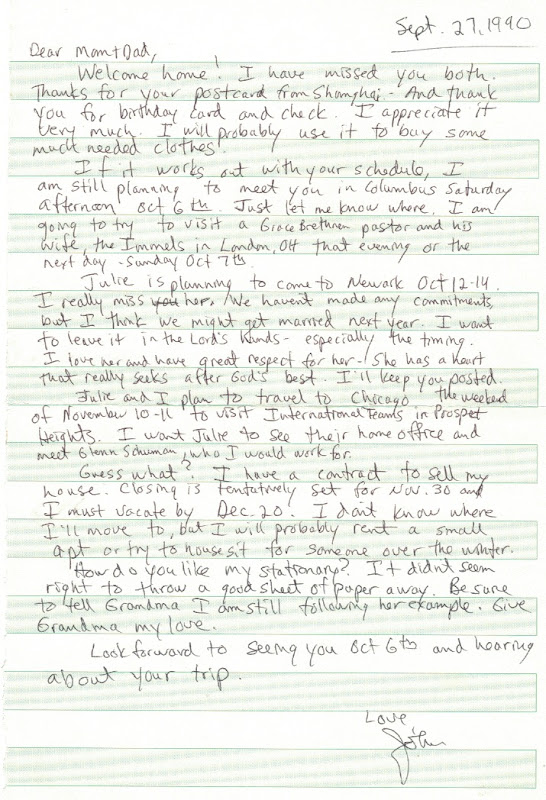 Sept. 27, 1990
Dear Mom + Dad,
Welcome home! I have missed you both.
Thanks for your postcard from Shanghai. And thank
you for birthday card and check. I appreciate it
very much. I will probably use it to buy some
much needed clothes.
If it works out with your schedule, I
am still planning to meet you in Columbus Saturday
afternoon Oct 6th. Just let me know where. I am
going to try to visit a Grace Brethren pastor and his
wife, the Immels in London, OH that evening or the
next day - Sunday Oct 7th.
Julie is planning to come to Newark Oct 12-14.
I really miss you her. We haven't made any commitments
but I think we might get married next year. I want
to leave it in the Lord's hands - especially the timing.
I love her and have great respect for her - She has a heart
that really seeks after God's best. I'll keep you posted.
Julie and I plan to travel to Chicago the weekend
of November 10-11 to visit International Teams in Prospect
Heights. I want Julie to see their home office and
meet Glenn, who I would work for.
Guess what? I have a contract to sell my
house. Closing is tentatively set for Nov. 30 and
I must vacate by Dec. 20! I don't know where
I'll move to, but I will probably rent a small
apt or try to housesit for someone over the winter.
How do you like my stationary? It didn't seem
right to throw a good sheet of paper away. Be sure
to tell Grandma I am still following her example. Give
Grandma my love.
Look forward to seeing you Oct 6th and hearing
about your trip.
Love
John